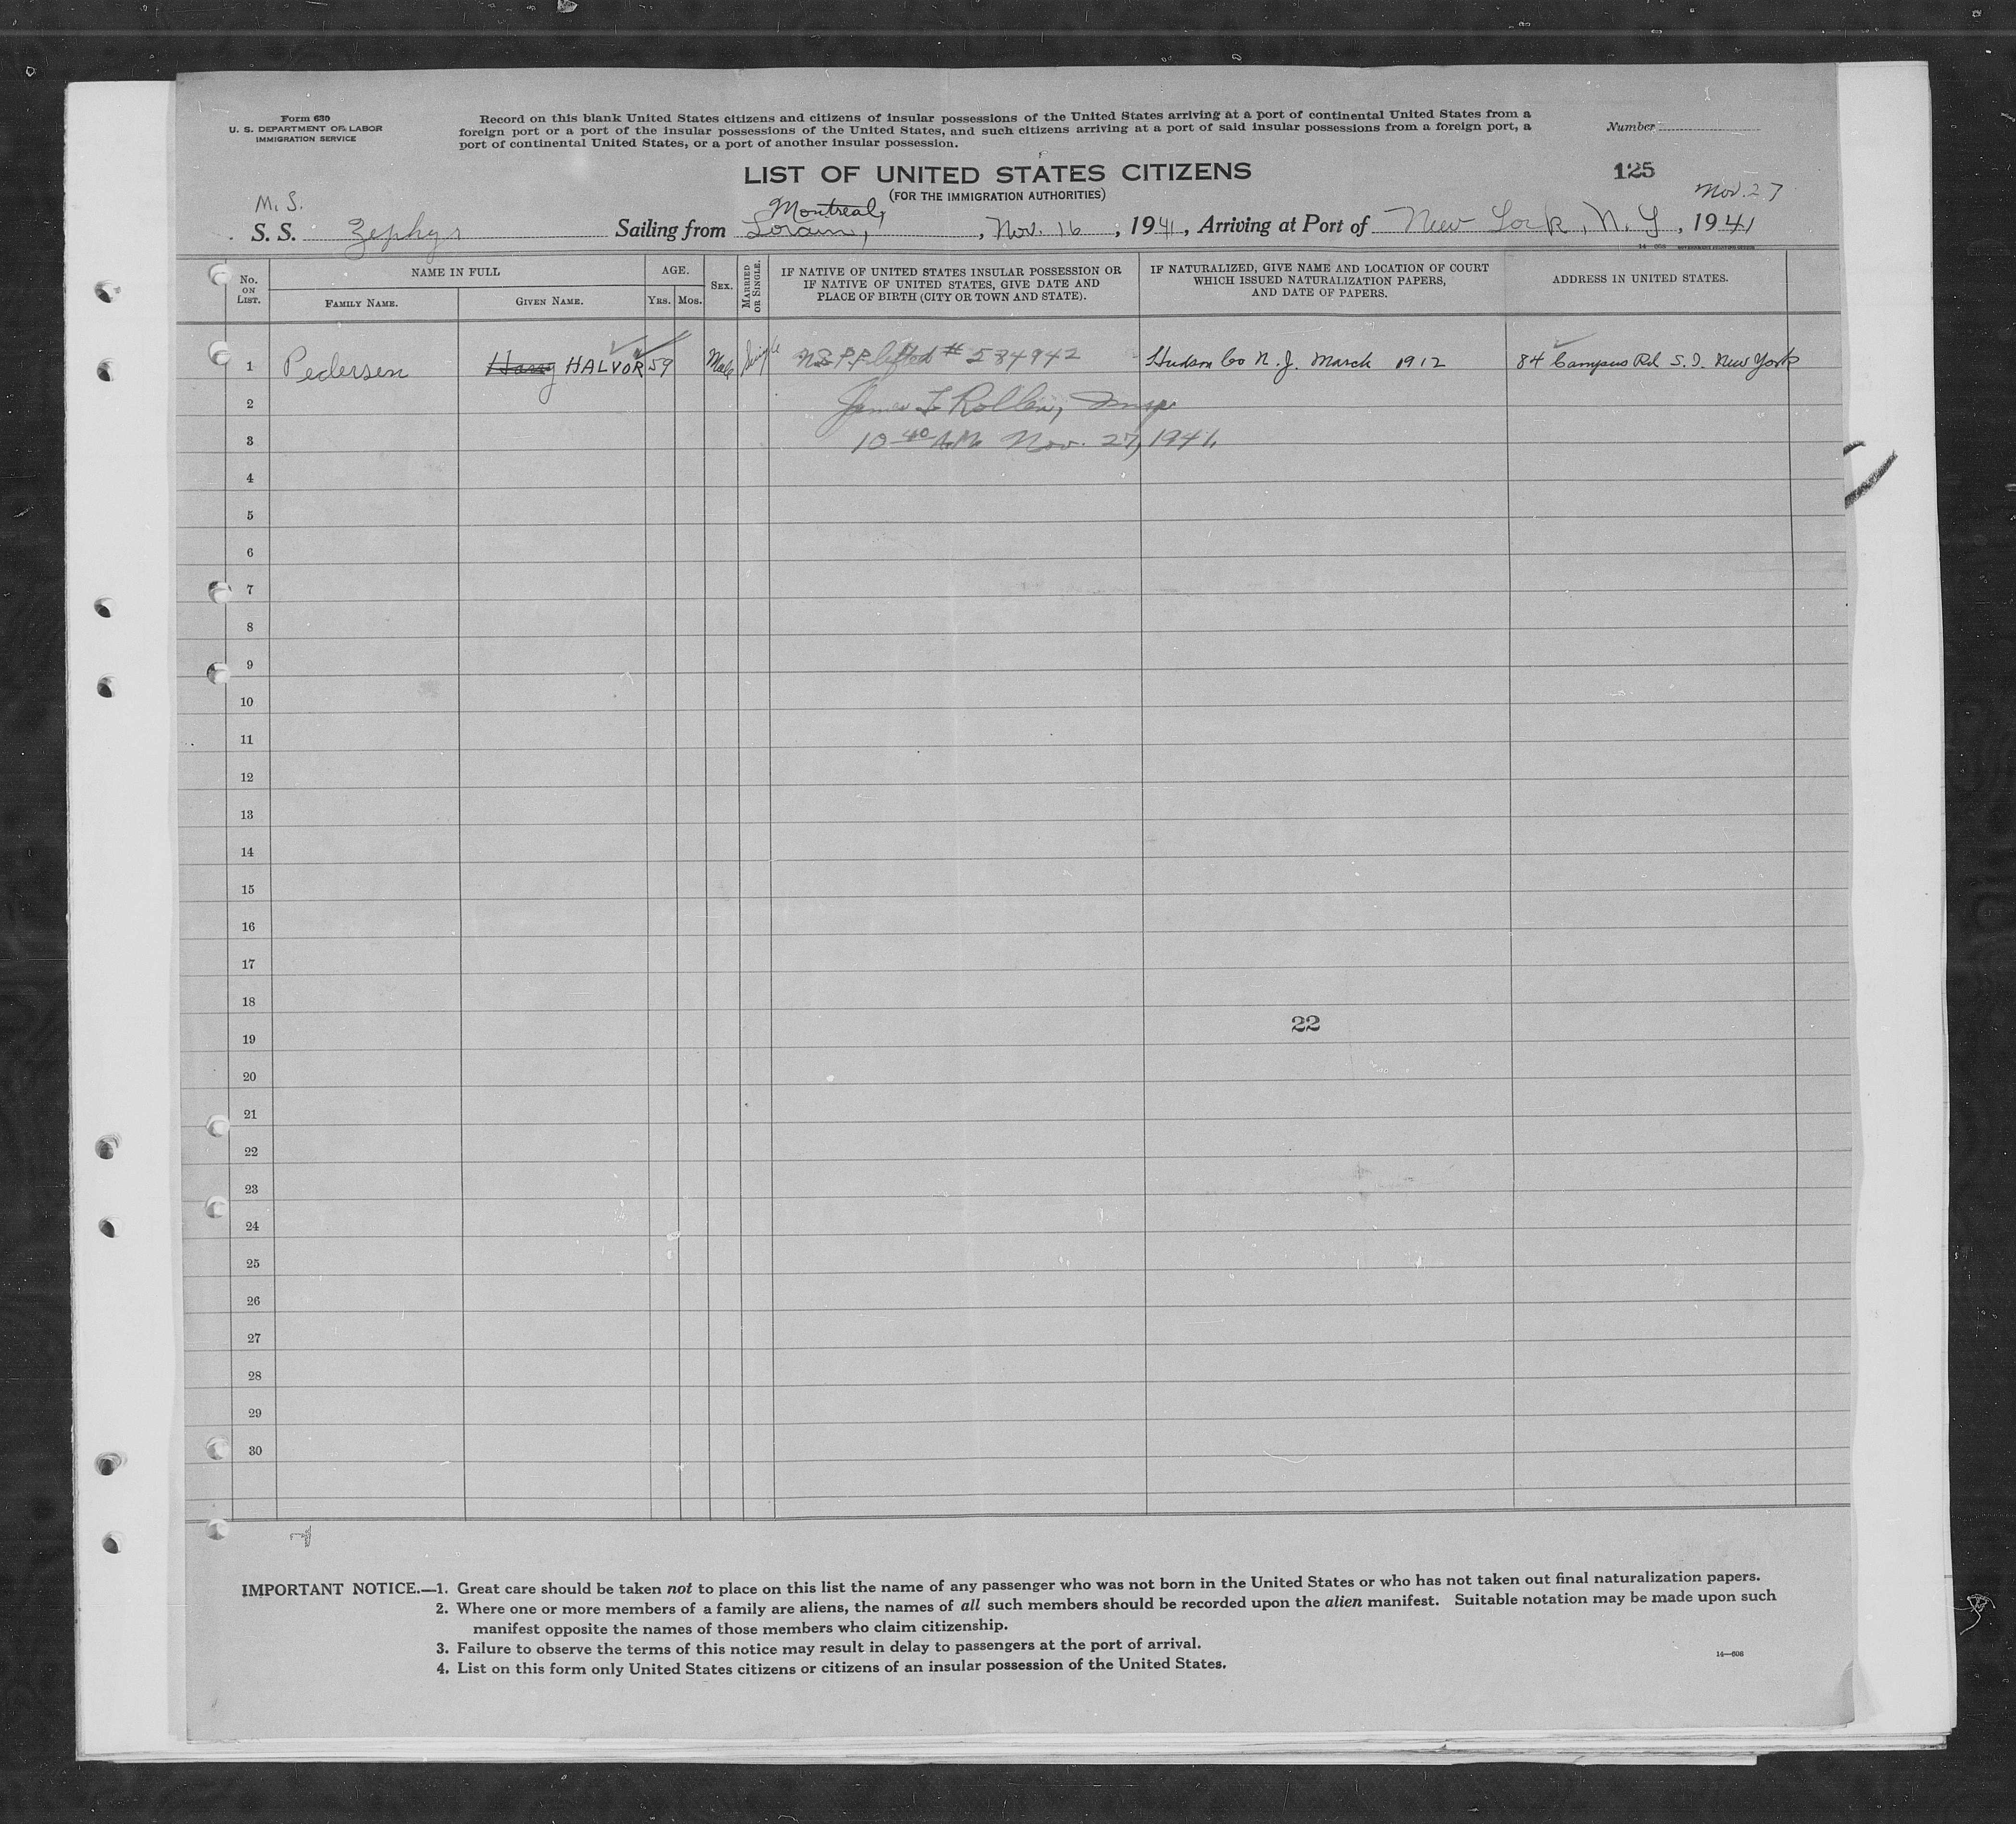 Form 630
U. S. DEPARTMENT OF LABOR
IMMIGRATION SERVICE
Record on this blank United States citizens and citizens of insular possessions of the United States arriving at a port of continental United States from a
foreign port or a port of the insular possessions of the United States, and such citizens arriving at a port of said insular possessions from a foreign port, a
port of continental United States, or a port of another insular possession.
Number
125
LIST OF UNITED STATES CITIZENS
(FOR THE IMMIGRATION AUTHORITIES)
M. S.
Montreal,
Nov. 27
S. S. Zephyr Sailing from Lorain, , Nov. 16 , 1941, Arriving at Port of New York, N. Y , 1941
No. ON LIST.
NAME IN FULL
FAMILY NAME.
GIVEN NAME.
AGE.
YRS. MOS.
SEX.
MARRIED OR SINGLE.
IF NATIVE OF UNITED STATES INSULAR POSSESSION OR
IF NATIVE OF UNITED STATES, GIVE DATE AND
PLACE OF BIRTH (CITY OR TOWN AND STATE).
IF NATURALIZED, GIVE NAME AND LOCATION OF COURT
WHICH ISSUED NATURALIZATION PAPERS,
AND DATE OF PAPERS.
ADDRESS IN UNITED STATES.
1 Pedersen Harry HALVOR 59 Male Single P.P. lifted # 534942 Hudson Co N. J. March 1912 84 Campus Rd S. I. New York
2 James
3 10 40 A.M. Nov. 27, 1941.
4
5
6
7
8
9
10
11
12
13
14
15
16
17
18
22
19
20
21
22
23
24
25
26
27
28
29
30
IMPORTANT NOTICE.—1. Great care should be taken not to place on this list the name of any passenger who was not born in the United States or who has not taken out final naturalization papers.
2. Where one or more members of a family are aliens, the names of all such members should be recorded upon the alien manifest. Suitable notation may be made upon such
manifest opposite the names of those members who claim citizenship.
3. Failure to observe the terms of this notice may result in delay to passengers at the port of arrival.
4. List on this form only United States citizens or citizens of an insular possession of the United States.
14—606